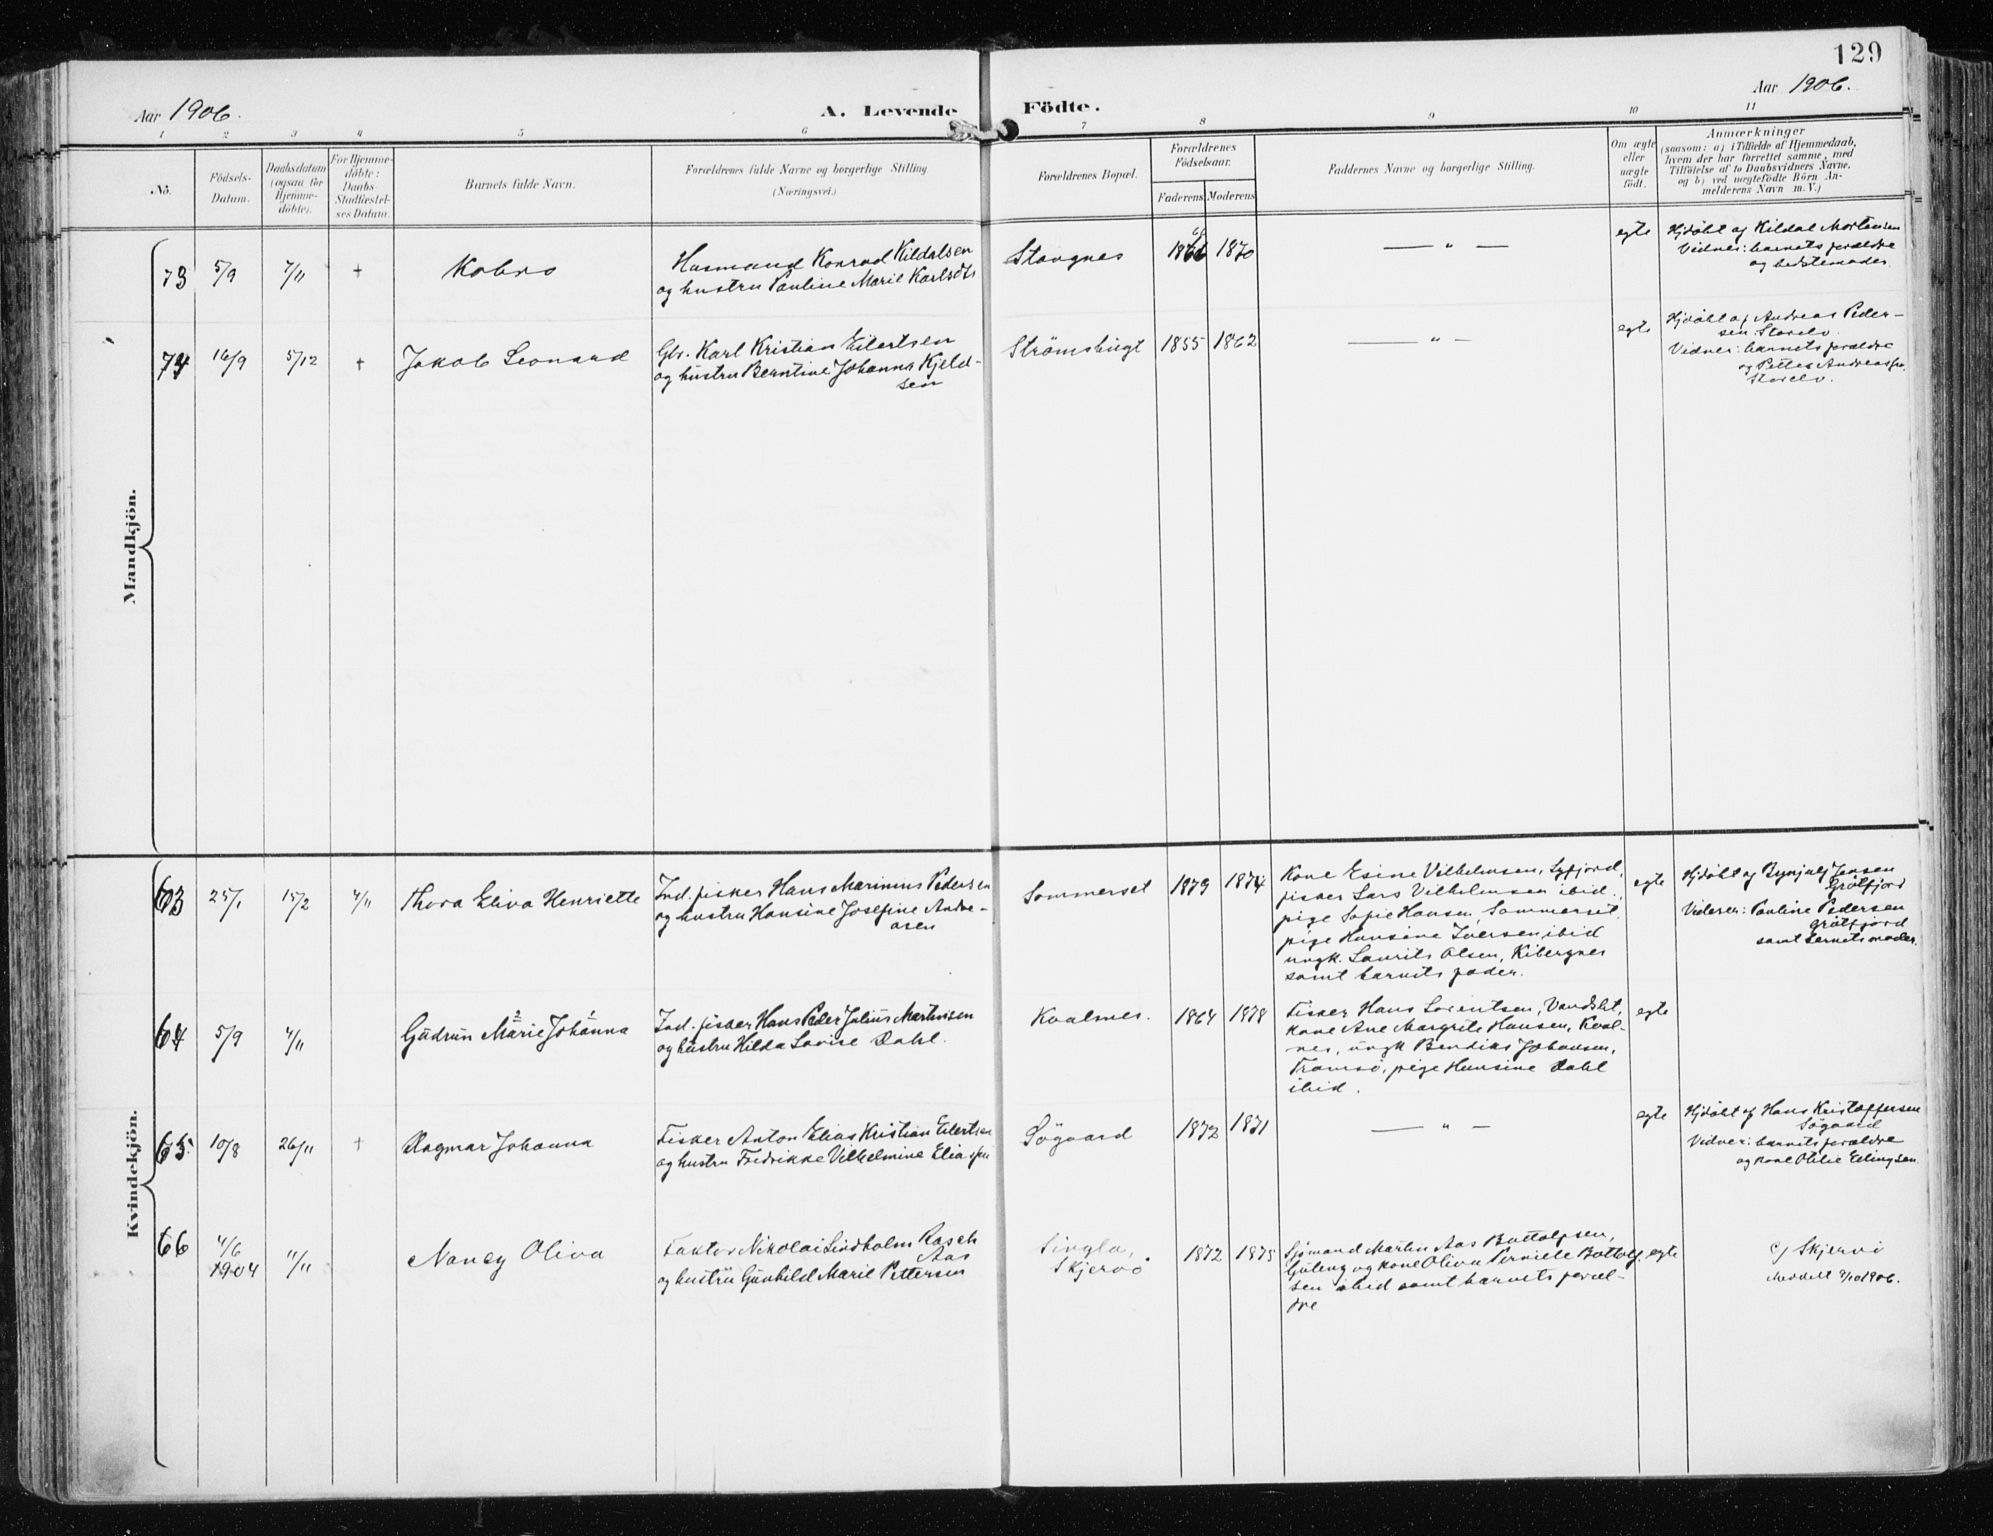 129
Aar 1906.
A. Levende Födte.
Aar 1906.
1 2 3 4 5 6 7 8 9 10 11
No.
Födsels-
Datum.
Daabsdatum
(ogsaa for
Hjemme-
döbte).
For Hjemme-
döbte:
Daabs-
Stadfæstel-
ses Datum.
Barnets fulde Navn.
Forældrenes fulde Navne og borgerlige Stilling
(Næringsvei.)
Forældrenes Bopæl.
Forældrenes
Födselsaar.
Faderens Moderens
Faddernes Navne og borgerlige Stilling.
Om ægte
eller
uægte
födt.
Anmærkninger
(saasom: a) i Tilfælde af Hjemmedaab,
hvem der har forrettet samme, med
Tilföielse af to Daabsvidners Navne,
og b) ved uægtefödte Börn An-
melderens Navn m. V.)
Mandkjön.
73 5/9 7/11 +
Kobro
Husmand Konrad Kildalsen
og hustru Pauline Marie Karlsdt.
Stongnes
1870
— " —
egte
Hjdøbt af Kildal Mortensen
Vidner: barnets forældre
og bedstemoder.
74 16/9 5/12 +
Jakob Leonard
Gbr. Karl Kristian Eilertsen
og hustru Berntine Johanna Kjeld-
sen
Strömsbugt
1855 1862
— " —
egte
Hjdøbt af Andreas Peder-
sen Storelv.
Vidner: barnets forældre
og Petter Andreassen
Storelv.
Kvindekjön.
63 25/1 15/2 4/11
Thora Eliva Henriette
Ind. fisker Hans Marinius Pedersen
og hustru Hansine Josefine Andre-
asen
Sommerset
1879 1874
Kone Esine Vilhelmsen, Lyfjord,
fisker Lars Vilhelmsen ibid,
pige Sofie Hansen, Sommerset,
pige Hansine Iversen, ibid
ungk. Laurits Olsen, Kibergnes
samt barnets fader.
egte
Hjdøbt af Jensen
Grötfjord
Vidner: Pauline Pedersen
Grötfjord
samt barnets moder.
64 5/9 4/11
Gudrun Marie Johanna
Ind. fisker Hans Peder Julius Martinsen
og hustru Hilda Lovise Dahl.
Kvalnes.
1864 1878
Fisker Hans Lorentsen, Vandsbt,
kone Ane Margrite Hansen, Kval-
nes, ungk Bendiks Johansen,
Tromsö, pige Hansine Dahl
ibid.
egte
65 10/8 26/11 +
Dagmar Johanna
Fisker Anton Elias Kristian Eilertsen
og hustru Fredrikke Vilhelmine Eliassen
Søgaard
1872 1871
— " —
egte
Hjdøbt af Hans Kristoffersen
Søgaard
Vidner: barnets forældre
og kone Otilie Erlingsen
66 4/6
1904 11/11
Nancy Oliva
Faktor Nikolai Lindholm Rasch
Aas
og hustru Gunhild Marie Pettersen
Singla,
Skjervö.
1872 1875
Sjømand Martin Aas Bottolfsen,
og kone Oliva Pernille Bottolf-
sen ibid samt barnets foræl-
dre
egte
Skjervö
Meddelt 9/10 1906.